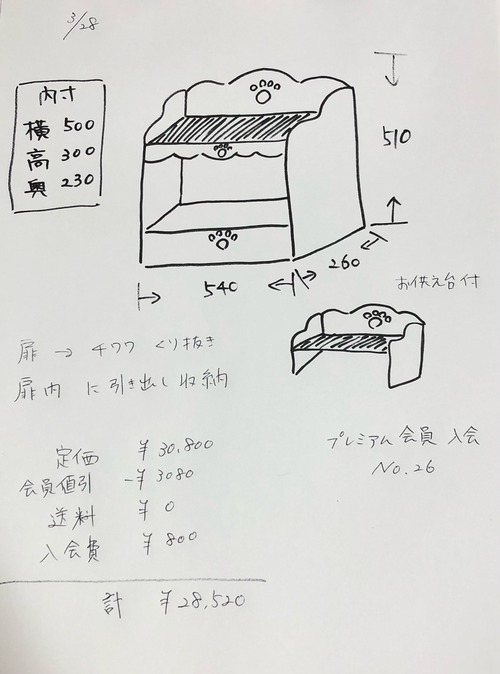 3/28
内寸
横 500
高 300
奥 230
510
260
540
お供え台付
扉 → チワワ くり抜き
扉内 に引き出し収納
プレミアム会員 入会
No.26
定価 ¥30,800
会員値引 -¥3080
送料 ¥0
入会費 ¥800
計 ¥28,520